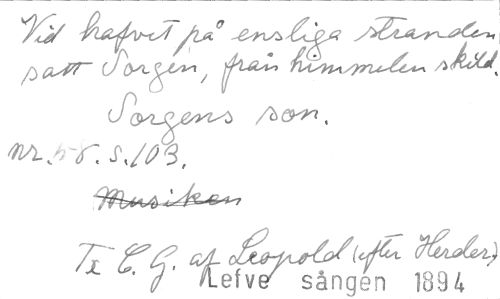 Vid hafvet på ensliga stranden
satt Sorgen, från himmelen skild.
Sorgens son.
nr. 58. s. 103.
Musiken
Tx C. G. af Leopold (efter Herder)
Lefve sången 1894